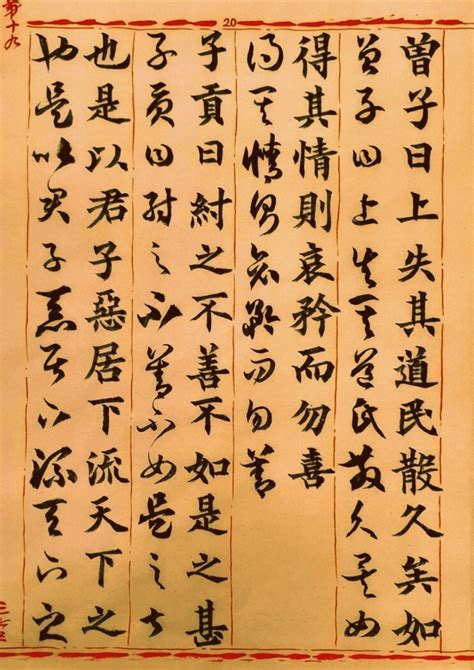 20
曾子曰上失其道民散久矣如
曾子曰上失其道民散久矣如
得其情則哀矜而勿喜
得其情則哀矜而勿喜
子貢曰紂之不善不如是之甚
子貢曰紂之不善不如是之甚
也是以君子惡居下流天下之
也是以君子惡居下流天下之
第十九